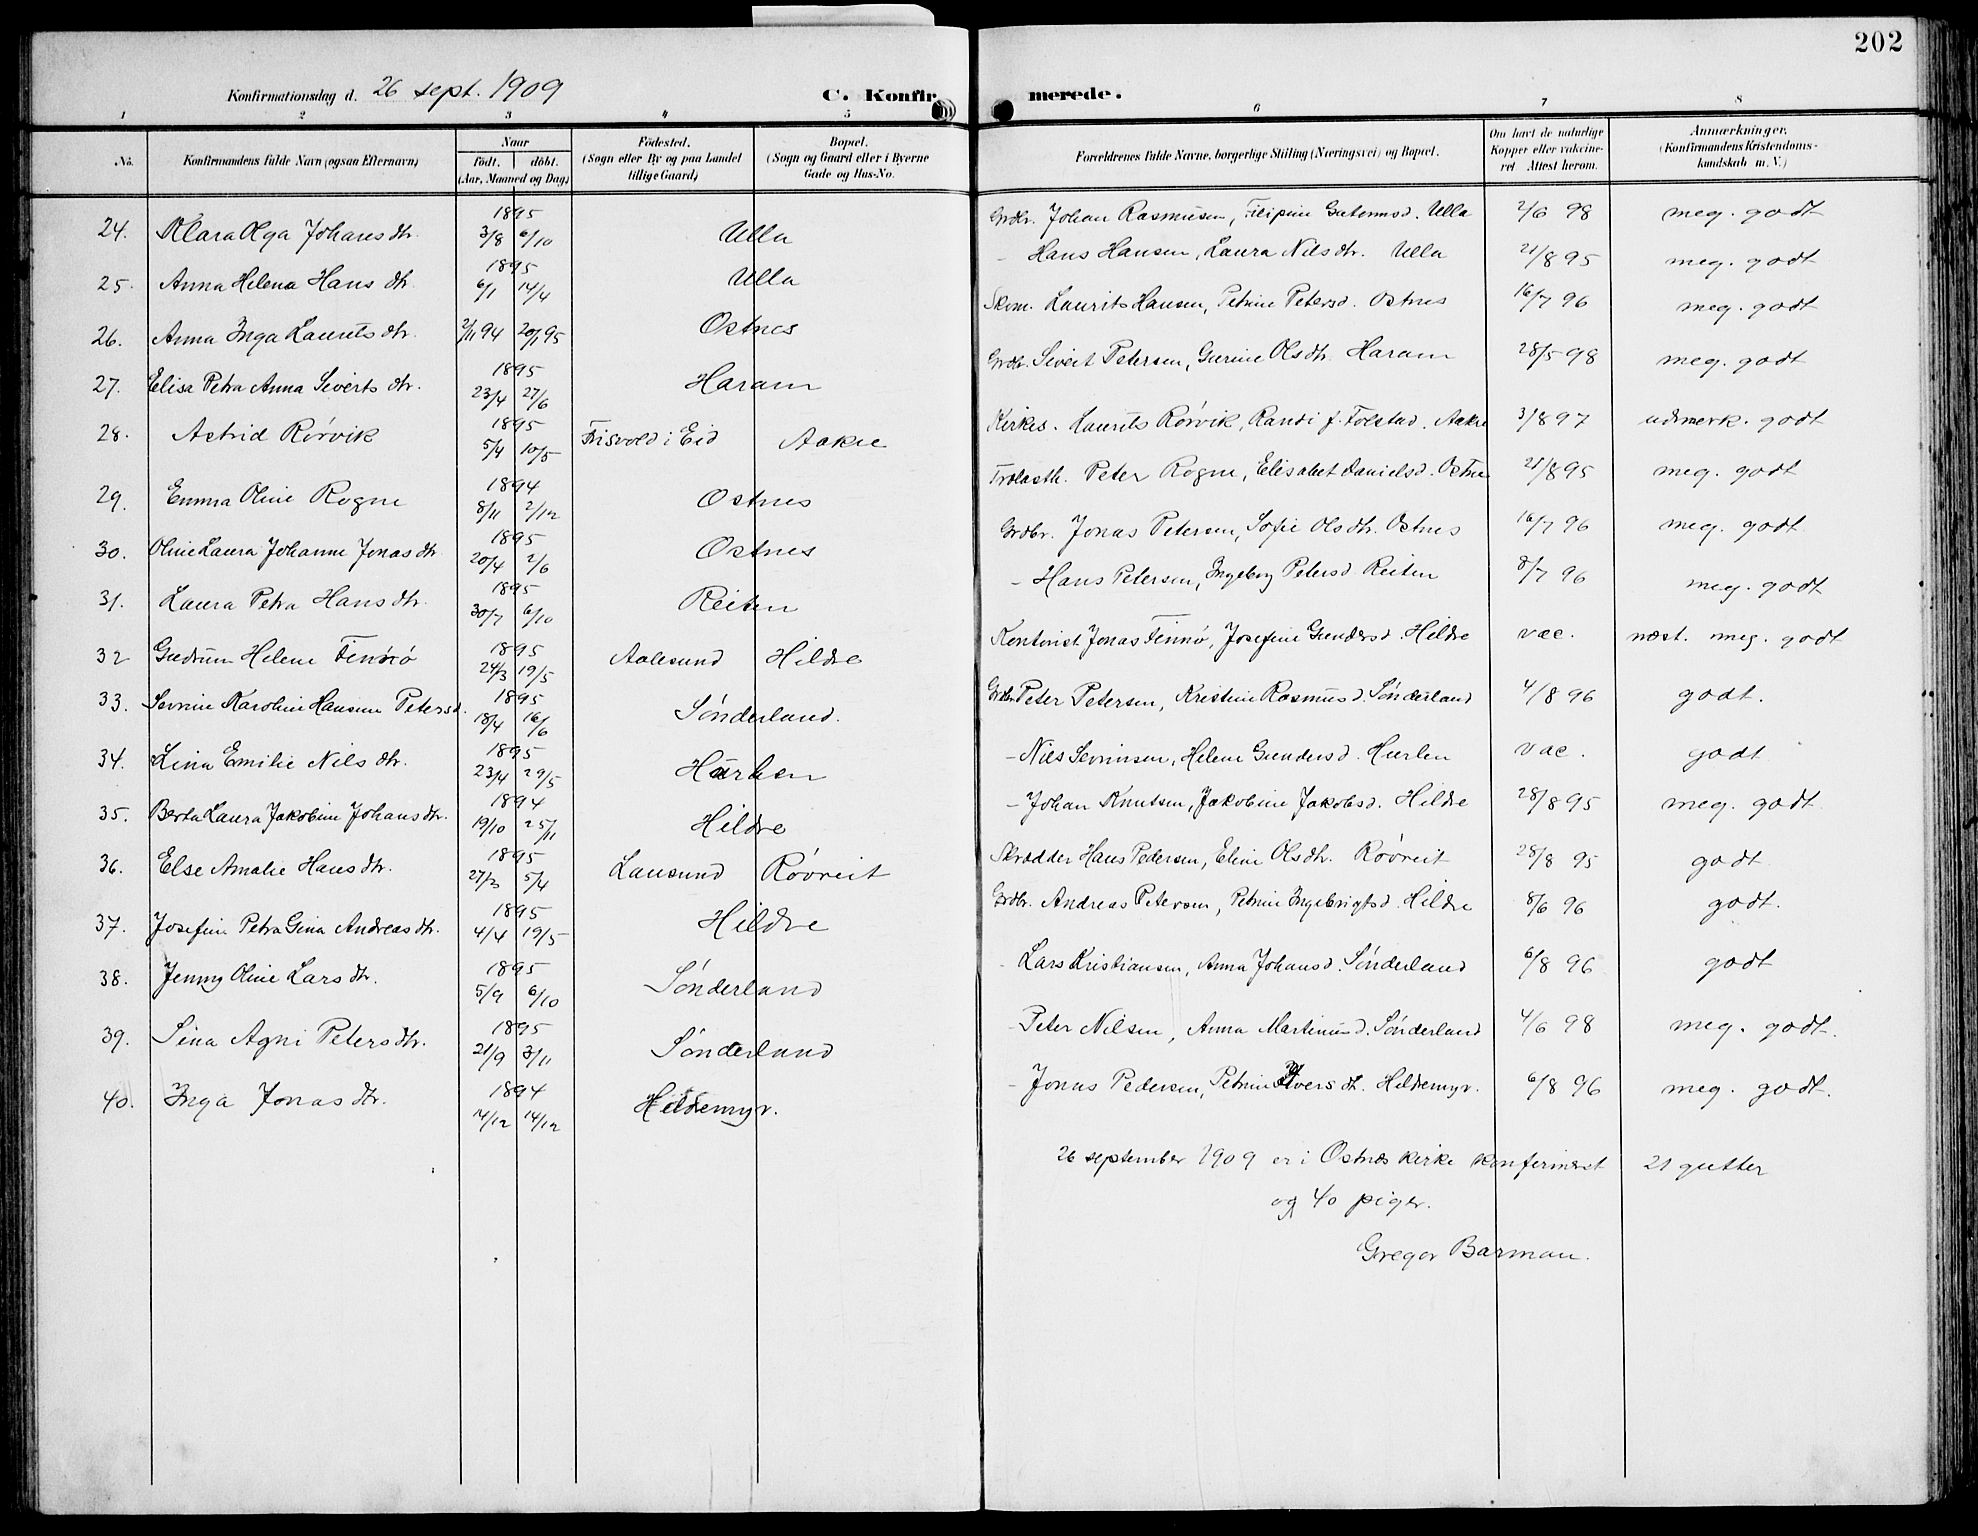 202
Konfirmationsdag d. 26 sept. 1909 C. Konfir merede.
1 2 3 4 5 6 7 8
No. Konfirmandens fulde Navn (ogsaa Efternavn) Naar födt. döbt. (Aar, Maaned og Dag) Födested. (Sogn eller By og paa Landet tillige Gaard) Bopæl. (Sogn og Gaard eller i Byerne Gade og Hus-No. Forældrenes fulde Navne, borgerlige Stilling (Næringsvei) og Bopæl. Om havt de naturlige Kopper eller vakcineret Attest herom. Anmærkninger. (Konfirmandens Kristendomskundskab m. V.)
24. Klara Olga Johans dtr. 1895 3/8 6/10 Ulla Grdbr. Johan Rasmusen, Filipine Gutormsd. Ulla 2/6 98 meg. godt
25. Anna Helena Hans dtr. 1895 6/1 14/4 Ulla - Hans Hansen, Laura Nils dtr. Ulla 21/8 95 meg. godt
26. Anna Inga Laurits dtr. 2/11 94 20/1 95 Ostnes Skom. Laurits Hansen, Petrine Petersd. Ostnes 16/7 96 meg. godt
27. Elisa Petra Anna Siverts dtr. 1895 23/4 27/6 Haram Grdbr. Sivert Petersen, Gurine Ols dtr. Haram 28/5 98 meg. godt
28. Astrid Rörvik 1895 5/4 10/5 Frisvold i Eid Aakre Kirkes. Laurits Rörvik, Randi f. Tolstad. Aakre 3/8 97 udmerk. godt
29. Emma Oline Rogne 1894 8/11 2/12 Ostnes Peter Rogne, Elisabet Danielsd. Ostne 21/8 95 meg. godt
30. Oline Laura Johanne Jonas dtr 1895 20/4 2/6 Ostnes Grdbr. Jonas Petersen, Sofie Ols dtr. Ostnes 16/7 96 meg. godt
31. Laura Petra Hans dtr. 1895 30/7 6/10 Reiten - Hans Petersen, Ingeborg Petersd Reiten 8/7 96 meg. godt
32 Gudrun Helene Finnö 1895 24/3 19/5 Aalesund Hildre Kontorist Jonas Finnö, Josefine Gundersd. Hildre vac. næst. meg. godt
33. Sevrine Karoline Hansine Petersd. 1895 18/4 16/6 Sönderland. Grdbr. Peter Petersen, Kristine Rasmusd. Sönderland 4/8 96 godt.
34. Lina Emilie Nils dtr. 1895 23/4 29/5 Hurlen - Nils Sevrinsen, Helene Gundersd. Hurlen vac. godt
35. Berta Laura Jakobine Johans dtr. 1894 19/10 25/11 Hildre - Johan Knutsen, Jakobine Jakobsd. Hildre 28/8 95 meg. godt
36. Else Amalie Hans dtr. 1895 27/3 5/4 Lausund Rövreit Skrædder Hans Pedersen, Eline Ols dtr. Rövreit 28/8 95 godt
37. Josefine Petra Gina Andreas dtr. 1895 4/4 19/5 Hildre Grdbr. Andreas Petersen, Petrine Ingebrigtsd. Hildre 8/6 96 godt.
38. Jenny Oline Lars dtr. 1895 5/9 6/10 Sönderland - Lars Kristiansen, Anna Johansd. Sönderland 6/8 96 godt
39. Sina Agni Peters dtr. 1895 21/9 3/11 Sönderland - Peter Nilsen, Anna Martinusd. Sönderland 4/6 98 meg. godt.
40. Inga Jonas dtr. 1894 14/12 Hildremyr. - Jonas Pedersen, Petrine Hildremyr. 6/8 96 meg. godt.
26 september 1909 er i Ostnes kirke konfirmert 21 gutter
og 40 piger.
Gregor Barman.